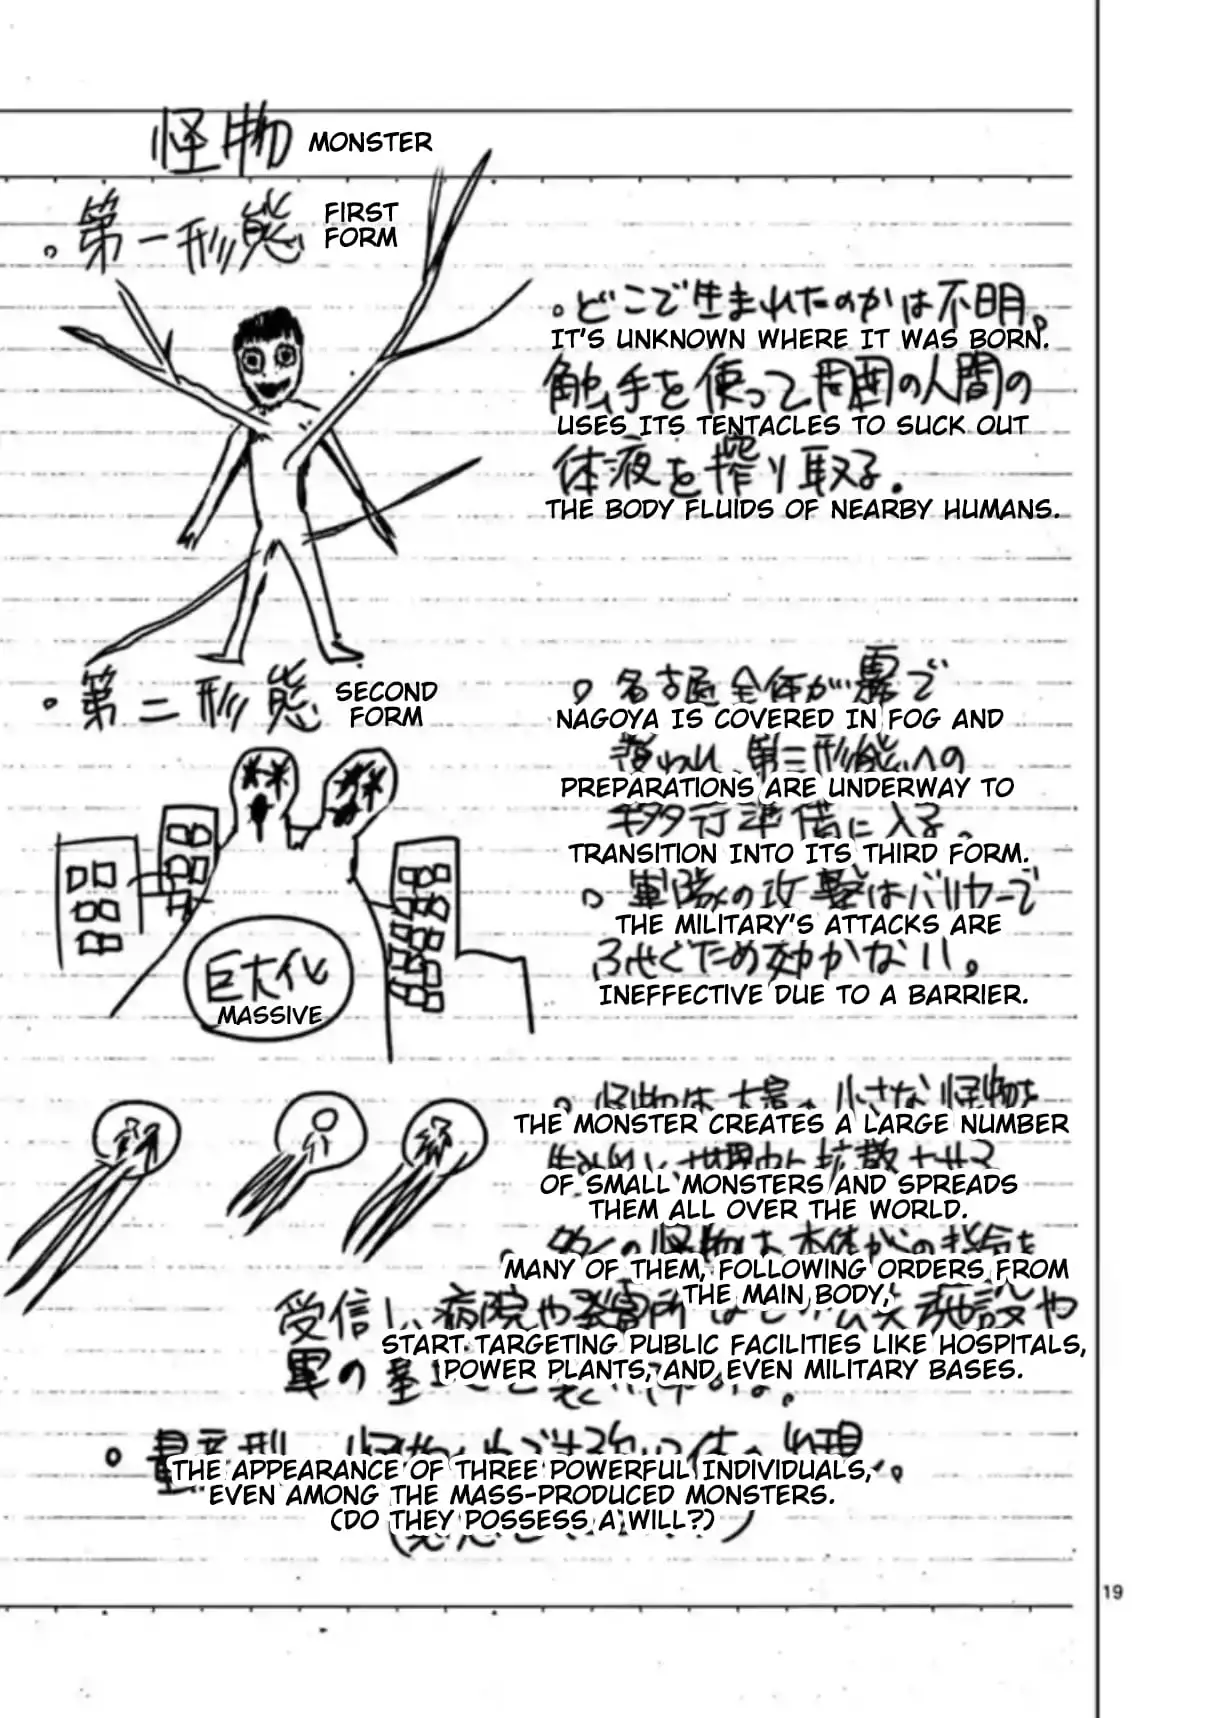 怪物 MONSTER
。第一形態 FIRST
FORM
。どこで生まれたのかは不明。
IT'S UNKNOWN WHERE IT WAS BORN.
触手を使って周囲の人間の
USES ITS TENTACLES TO SUCK OUT
体液を搾り取る。
THE BODY FLUIDS OF NEARBY HUMANS.
。第二形態 SECOND
FORM
。名古屋全体が霧で
NAGOYA IS COVERED IN FOG AND
第三形態への
PREPARATIONS ARE UNDERWAY TO
移行準備に入る。
TRANSITION INTO ITS THIRD FORM.
。軍隊の攻撃はバリヤーで
THE MILITARY'S ATTACKS ARE
ふせぐため効かない。
INEFFECTIVE DUE TO A BARRIER.
巨大化
MASSIVE
小さな怪物を
THE MONSTER CREATES A LARGE NUMBER
OF SMALL MONSTERS AND SPREADS
THEM ALL OVER THE WORLD.
MANY OF THEM, FOLLOWING ORDERS FROM
THE MAIN BODY,
受信し病院や発電所 施設や
START TARGETING PUBLIC FACILITIES LIKE HOSPITALS,
軍の
POWER PLANTS, AND EVEN MILITARY BASES.
THE APPEARANCE OF THREE POWERFUL INDIVIDUALS,
EVEN AMONG THE MASS-PRODUCED MONSTERS.
(DO THEY POSSESS A WILL?)
19